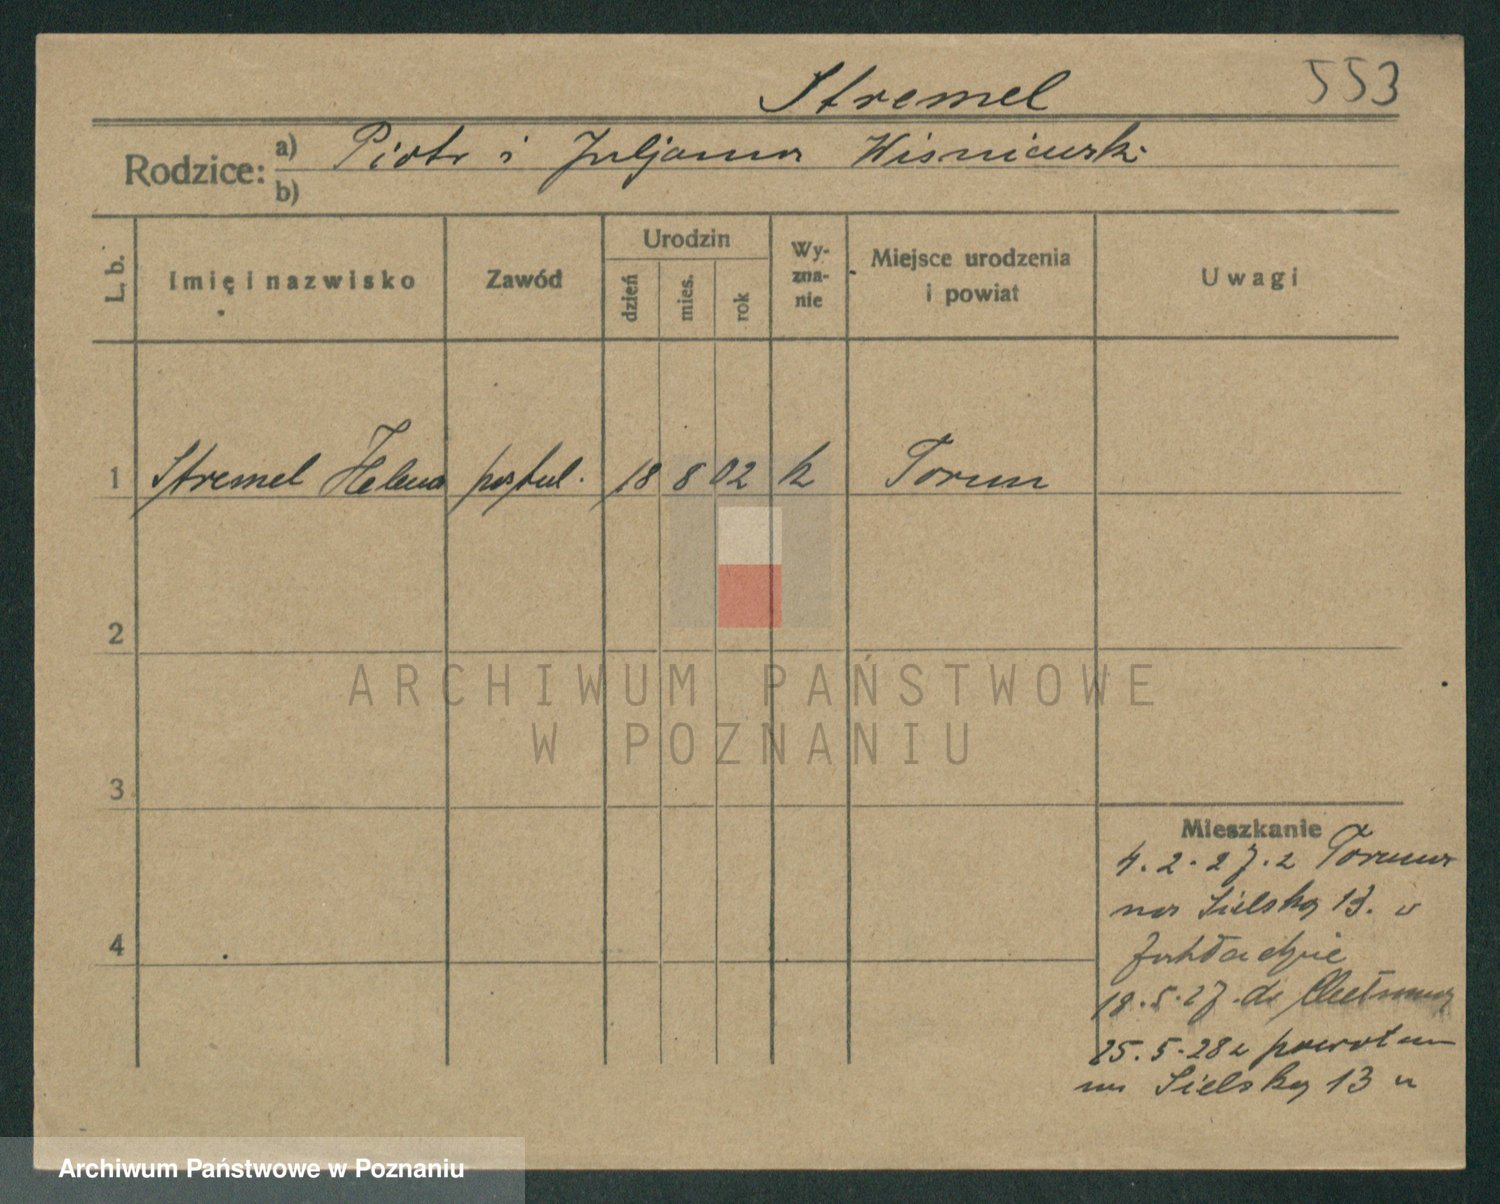 Stremel 553
Rodzice: a) Piotr i Juljanna Wisniewski
b)
L. b. Imię i nazwisko Zawód Urodzin dzień mies. rok Wy-zna-nie Miejsce urodzenia i powiat Uwagi
1 Stremel Helena postul. 18 8 02 k Torun
2
3
4
Mieszkanie
4.2.27. z Torunia
na Sielską 13. u
Zakładzie
18.5.27. do Chełmna
25.5.28 z powrotem
na Sielską 13 u
ARCHIWUM PAŃSTWOWE
W POZNANIU
Archiwum Państwowe w Poznaniu